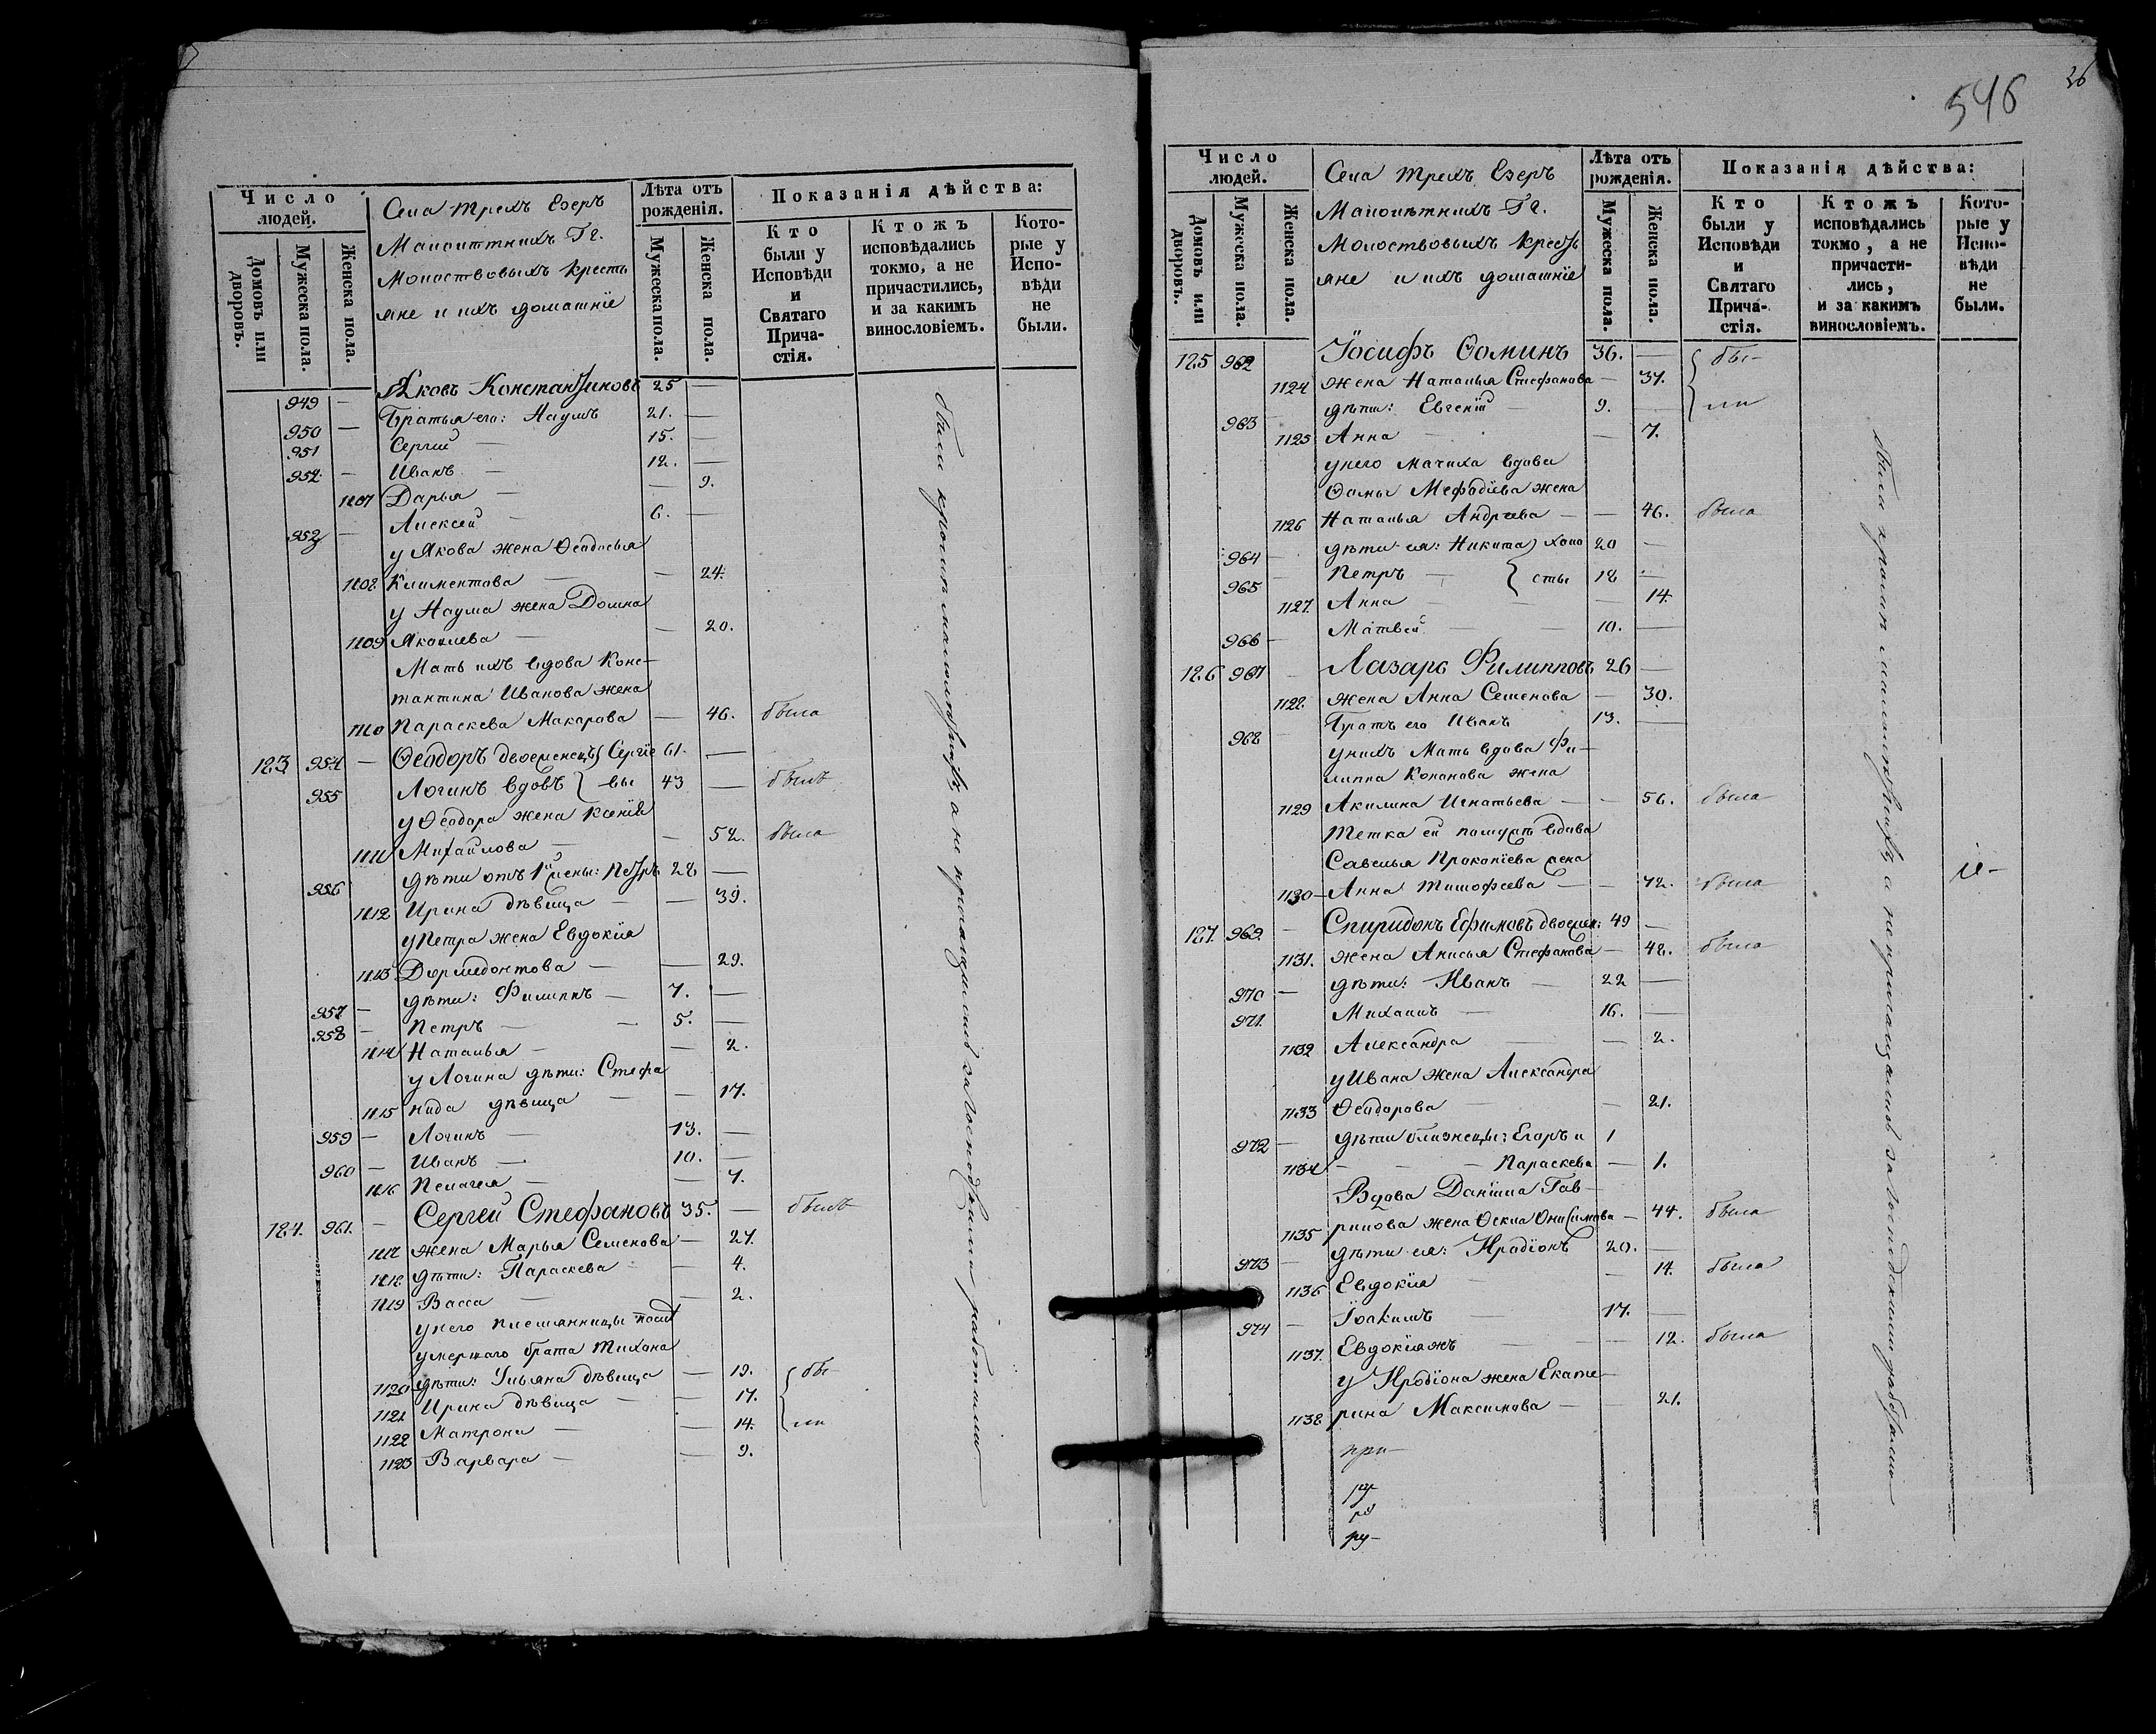 Число людей.
Домовъ или дворовъ.
Мужеска пола.
Женска пола.
Села трехъ Езеръ
Малолѣтныхъ Гг.
Молоствовыхъ кресть
яне и ихъ домашніе
Лѣта отъ рожденія.
Мужеска пола.
Женска пола.
Показанія дѣйства:
Кто были у Исповѣди и Святаго Причастія.
Ктожъ исповѣдались токмо, а не причастились, и за какимъ винословіемъ.
Которые у Исповѣди не были.
949 — Яковъ Константиновъ 25 —
950 — Братья его: Наумъ 21. —
951 Сергій — 15. —
952 — Иванъ — 12. —
1107 Дарья — — 9.
953 — Алексей — 6. —
у Якова жена Ѳеодосья
1108 Климентова — — 24.
у Наума жена Домна
1109 Яковлева — — 20.
Мать ихъ вдова Конс-
тантина Иванова жена
1110 Параскева Макарова — 46. была
123 954 — Ѳеодоръ двоеженецъ Сергіе 61. —
955 Логинъ вдовъ } —вы 43 — былъ
у Ѳеодора жена Ксенія
1111 Михайлова — — 52. была
956 дѣти отъ 1й жены: Петръ 28 —
1112 Ирина дѣвица — — 39.
у Петра жена Евдокія
1113 Дормедонтова — — 29.
957 — дѣти: Филиппъ — 7. —
958 — Петръ — — 5. —
1114 Наталья — — 2.
у Логина дѣти: Стефа
1115 нида дѣвица — — 17.
959 — Логинъ — 13. —
960 — Иванъ — 10. —
1116 Пелагея — — 7.
124. 961. — Сергей Стефановъ 35. — былъ
1117 жена Марья Семенова — 27.
1118 дѣти: Параскева — 4.
1119 Васса — — 2.
у него племянницы
умершаго брата Тихона
1120 дѣти: Ульяна дѣвица — 19. { бы-
1121 Ирина дѣвица — — 17.
1122 Матрона — — 14. { ли
1123 Варвара — — 9.
были кромѣ малолѣтныхъ, а не причащались за господскими работами
546
26
Число людей.
Домовъ или дворовъ.
Мужеска пола.
Женска пола.
Села трехъ Езеръ
Малолѣтныхъ Гг.
Молоствовыхъ кресть
яне и ихъ домашніе
Лѣта отъ рожденія.
Мужеска пола.
Женска пола.
Показанія дѣйства:
Кто были у Исповѣди и Святаго Причастія.
Ктожъ исповѣдались токмо, а не причастились, и за какимъ винословіемъ.
Которые у Исповѣди не были.
125 962 Іосифъ Ѳоминъ 36. — { бы-
1124 жена Наталья Стефанова — 37.
963 — дѣти: Евгеній — 9. — { ли
1125 Анна — — 7.
у него мачиха вдова
Ѳомы Мефодіева жена
1126 Наталья Андреева — — 46. была
964 — дѣти ея: Никита } холо 20 —
965 — Петръ — } сты 18 —
1127. Анна — — — 14.
966 — Матвей — — 10. —
126 967 — Лазарь Филипповъ 26 —
1128. жена Анна Семенова — 30.
968 — Братъ его Иванъ 13. —
у нихъ Мать вдова Фи-
липпа Кононова жена
1129 Акилина Игнатьева — — 56. была
Тетка ей вдова
Савелья Прокопіева жена
1130 — Анна Тимофеева — — 72. была
127. 969. — Спиридонъ Ефимовъ двоежен: 49 —
1131. жена Анисья Стефанова — 48. была
970 — дѣти: Иванъ — 22 —
971. Михаилъ — 16. —
1132 Александра — — 2.
у Ивана жена Александра
1133 Ѳеодорова — — 21.
972 — дѣти близнецы: Егоръ и 1
1134 — — — Параскева — 1.
Вдова Даніила Гав-
1135 рилова жена Ѳекла Онисимова — 44. была
973 дѣти ея: Иродіонъ 20. —
1136 Евдокія — — 14. была
974 — Іоакимъ — 17. —
1137. Евдокіяжъ — — 12. была
у Иродіона жена Екате-
1138 рина Максимова — — 21.
при-
ру-
были кромѣ малолѣтныхъ, а не причащались за господскими работами